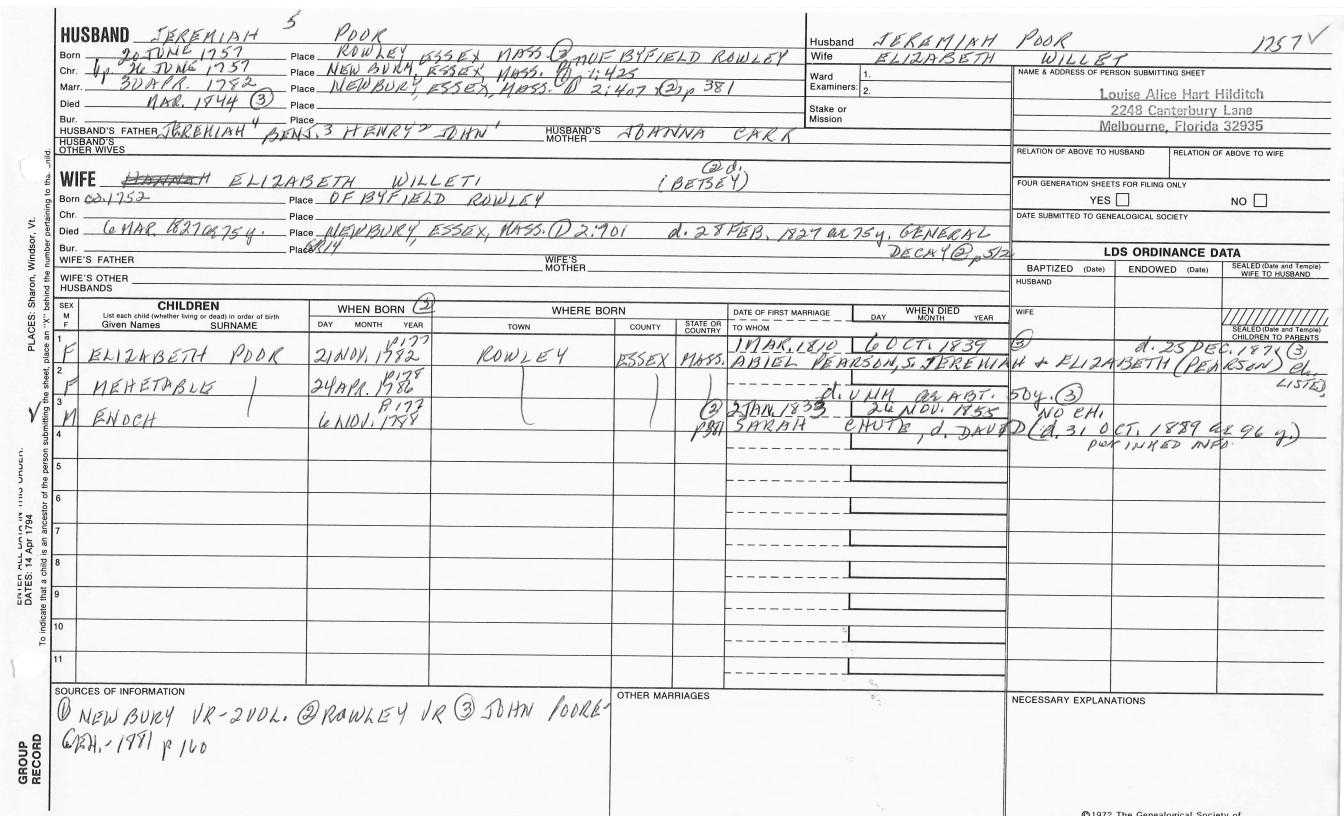 5
HUSBAND JEREMIAH POOR
Born 20 JUNE 1757 Place ROWLEY, ESSEX MASS. ② BYFIELD ROWLEY
Chr. bp 26 JUNE 1757 Place NEWBURY, ESSEX, MASS. ① 1:425
Marr. 30 APR. 1782 Place NEWBURY, ESSEX, MASS. ① 2:407 ② p 381
Died MAR. 1844 ③ Place
Bur. Place
HUSBAND'S FATHER JEREMIAH⁴ BENJ.³ HENRY² JOHN¹ HUSBAND'S MOTHER JOANNA CARR
HUSBAND'S OTHER WIVES
Husband JEREMIAH POOR 1757 ✓
Wife ELIZABETH WILLET
Ward Examiners: 1.
2.
Stake or Mission
NAME & ADDRESS OF PERSON SUBMITTING SHEET
Louise Alice Hart Hilditch
2248 Canterbury Lane
Melbourne, Florida 32935
RELATION OF ABOVE TO HUSBAND RELATION OF ABOVE TO WIFE
FOUR GENERATION SHEETS FOR FILING ONLY
YES NO
DATE SUBMITTED TO GENEALOGICAL SOCIETY
WIFE HANNAH ELIZABETH WILLETT (BETSEY) ② d.
Born ca. 1752 Place OF BYFIELD ROWLEY
Chr. Place
Died 6 MAR. 1827 ae 75 y. Place NEWBURY, ESSEX, MASS. ① 2:701 d. 28 FEB. 1827 ae 75y. GENERAL
Bur. Place GR14 DECAY ② p 512
WIFE'S FATHER WIFE'S MOTHER
WIFE'S OTHER HUSBANDS
LDS ORDINANCE DATA
BAPTIZED (Date) ENDOWED (Date) SEALED (Date and Temple) WIFE TO HUSBAND
HUSBAND
WIFE
SEALED (Date and Temple) CHILDREN TO PARENTS
SEX M F CHILDREN WHEN BORN ② WHERE BORN DATE OF FIRST MARRIAGE WHEN DIED
List each child (whether living or dead) in order of birth
Given Names SURNAME DAY MONTH YEAR TOWN COUNTY STATE OR COUNTRY TO WHOM DAY MONTH YEAR
1 P177 1 MAR. 1810 6 OCT. 1839 ③ d. 25 DEC. ③
F ELIZABETH POOR 21 NOV. 1782 ROWLEY ESSEX MASS. ABIEL PEARSON, S. JEREMIAH & ELIZABETH (PEARSON) ch. LISTED
2 P178
F MEHETABLE 24 APR. 1786 d. UNM ae ABT. 50y. ③
3 P177 ③ 2 JAN. 1833 26 NOV. 1855 NO CH.
M ENOCH 6 NOV. 1788 p381 SARAH CHUTE, d. DAVID (d. 31 OCT. 1889 ae 96 y.)
per INKED INFO.
4
5
6
7
8
9
10
11
SOURCES OF INFORMATION
① NEWBURY VR-2VOL. ② ROWLEY VR ③ JOHN POORE
GEN.-1881 p 160
OTHER MARRIAGES
NECESSARY EXPLANATIONS
©1972 The Genealogical Society of
PLACES: Sharon, Windsor, Vt.
ENTER ALL DATA IN THIS ORDER:
DATES: 14 Apr 1794
To indicate that a child is an ancestor of the person submitting the sheet, place an "X" behind the number pertaining to that child.
GROUP RECORD